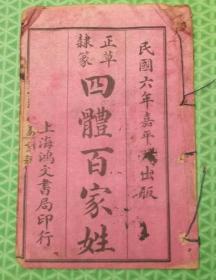 民國六年嘉平出版
正草
隸篆
四體百家姓
上海鴻文書局印行